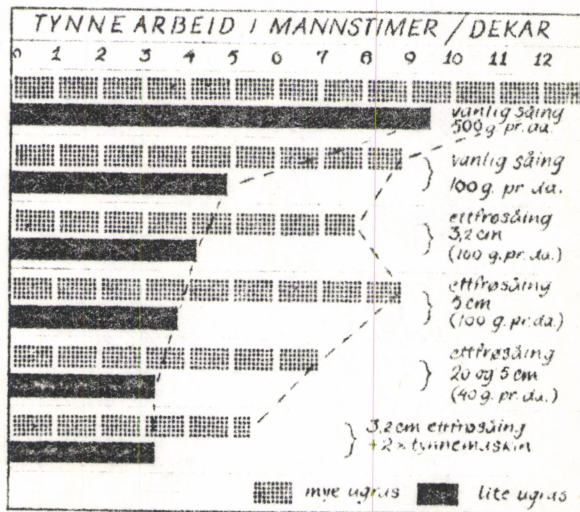 TYNNEARBEID I MANNSTIMER / DEKAR
0 1 2 3 4 5 6 7 8 9 10 11 12
vanlig såing
500 g. pr. da.
vanlig såing
100 g. pr da.
ettfrøsåing
3,2 cm
(100 g. pr. da.)
ettfrøsåing
5 cm
(100 g. pr. da.)
ettfrøsåing
20 og 5 cm
(40 g. pr. da.)
3,2 cm ettfrøsåing
+ 2 × tynnemaskin
mye ugras lite ugras